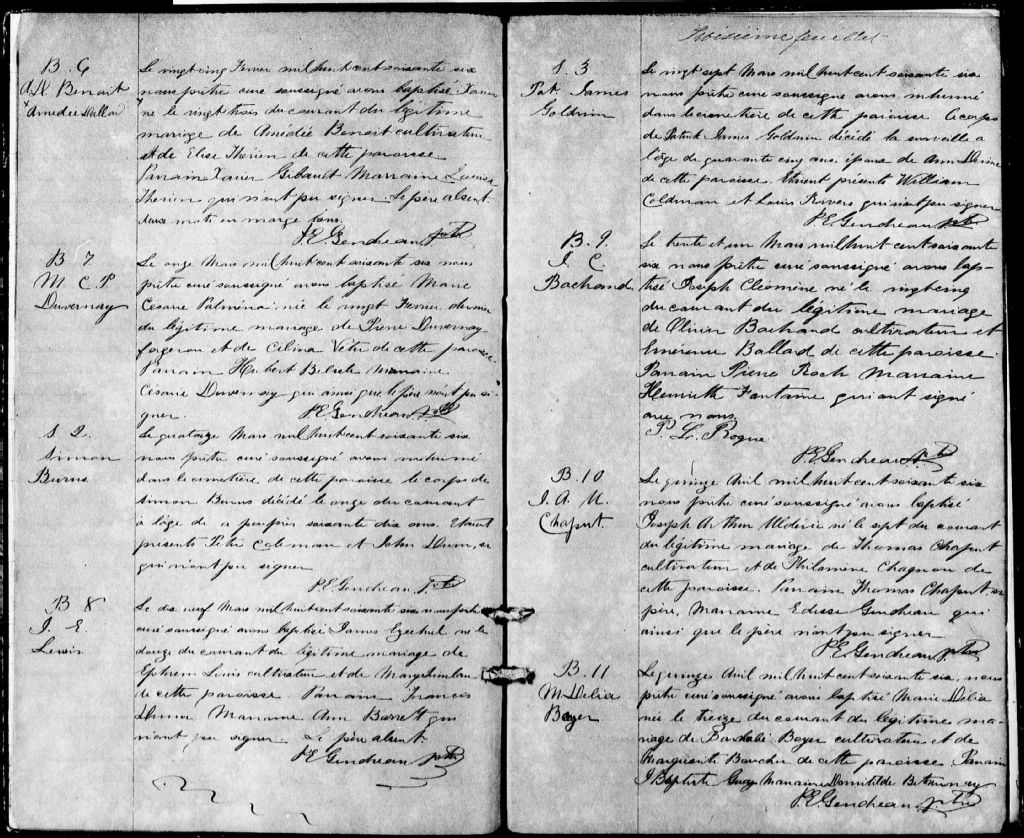 B. 6
A. X. Benoit
Amédée
Le vingt cinq Fevrier mil huit cent soixante six
nous prêtre curé soussigné avons baptisé Xavier
né le vingt trois du courant du légitime
mariage de Amédée Benoit cultivateur
et de Elise Therien de cette paroisse
Parrain Xavier Gibault Marraine Louisa
Therien qui n'ont pu signer. Le père absent.
deux mots en marge bons.
P.E. Gendreau ptre
B 7
M. C. P.
Duvernay
Le onze Mars mil huit cent soixante six nous
prêtre curé soussigné avons baptisé Marie
Cesarie Palmina née le vingt Fevrier dernier
du légitime mariage de Pierre Duvernay
forgeron et de Célina Vitu de cette paroisse
Parrain Hubert Marraine
Césarie Duvernay qui ainsi que le père n'ont pu si-
gner.
P.E. Gendreau ptre
S. 2.
Simon
Burns
Le quatorze Mars mil huit cent soixante six
nous prêtre curé soussigné avons inhumé
dans le cimetière de cette paroisse le corps de
Simon Burns décédé le onze du courant
à l'âge de a peu près soixante dix ans. Etaient
présents Peter Coleman et John Dunn,
qui n'ont pu signer
P.E. Gendreau ptre
B 8
J. E.
Lewis
Le dix neuf Mars mil huit cent soixante six nous prêtre
curé soussigné avons baptisé James Ezechiel né le
douze du courant du légitime mariage de
Ephrem Lewis cultivateur et de Mary
de cette paroisse. Parrain Francis
Dunn Marraine Ann Barrett qui
n'ont pu signer. Le père absent.
P.E. Gendreau ptre
Troisième feuillet
S. 3
Pat. James
Goldwin
Le vingt sept Mars mil huit cent soixante six
nous prêtre curé soussigné avons inhumé
dans le cimetière de cette paroisse le corps
de Patrick James Goldwin décédé la surveille a
l'âge de quarante cinq ans, époux de Ann Devine
de cette paroisse. Etaient présents William
Coldman et Louis Rivers qui n'ont pu signer
P.E. Gendreau ptre
B. 9.
J. C.
Bachand
Le trente et un Mars mil huit cent soixante
six nous prêtre curé soussigné avons bap-
tisé Joseph Cléomine né le vingt cinq
du courant du légitime mariage
de Olivier Bachand cultivateur et
Emérence Ballard de cette paroisse.
Parrain Pierre Roch Marraine
Henriette Fontaine qui ont signé
avec nous
P. L. Roque
P.E. Gendreau ptre
B. 10
J. A. M.
Chaput
Le quinze Avril mil huit cent soixante six
nous prêtre curé soussigné avons baptisé
Joseph Arthur Médéric né le sept du courant
du légitime mariage de Thomas Chaput
cultivateur et de Philomène Chagnon de
cette paroisse. Parrain Thomas Chaput
père, Marraine Edesse Gendreau qui
ainsi que le père n'ont pu signer
P.E. Gendreau ptre
B. 11
M. Délia
Boyer
Le quinze Avril mil huit cent soixante six, nous
prêtre curé soussigné avons baptisé Marie Délia
née le treize du courant du légitime ma-
riage de Barnabé Boyer cultivateur et de
Marguerite Boucher de cette paroisse Parrain
J. Baptiste Marraine Domitilde
P.E. Gendreau ptre